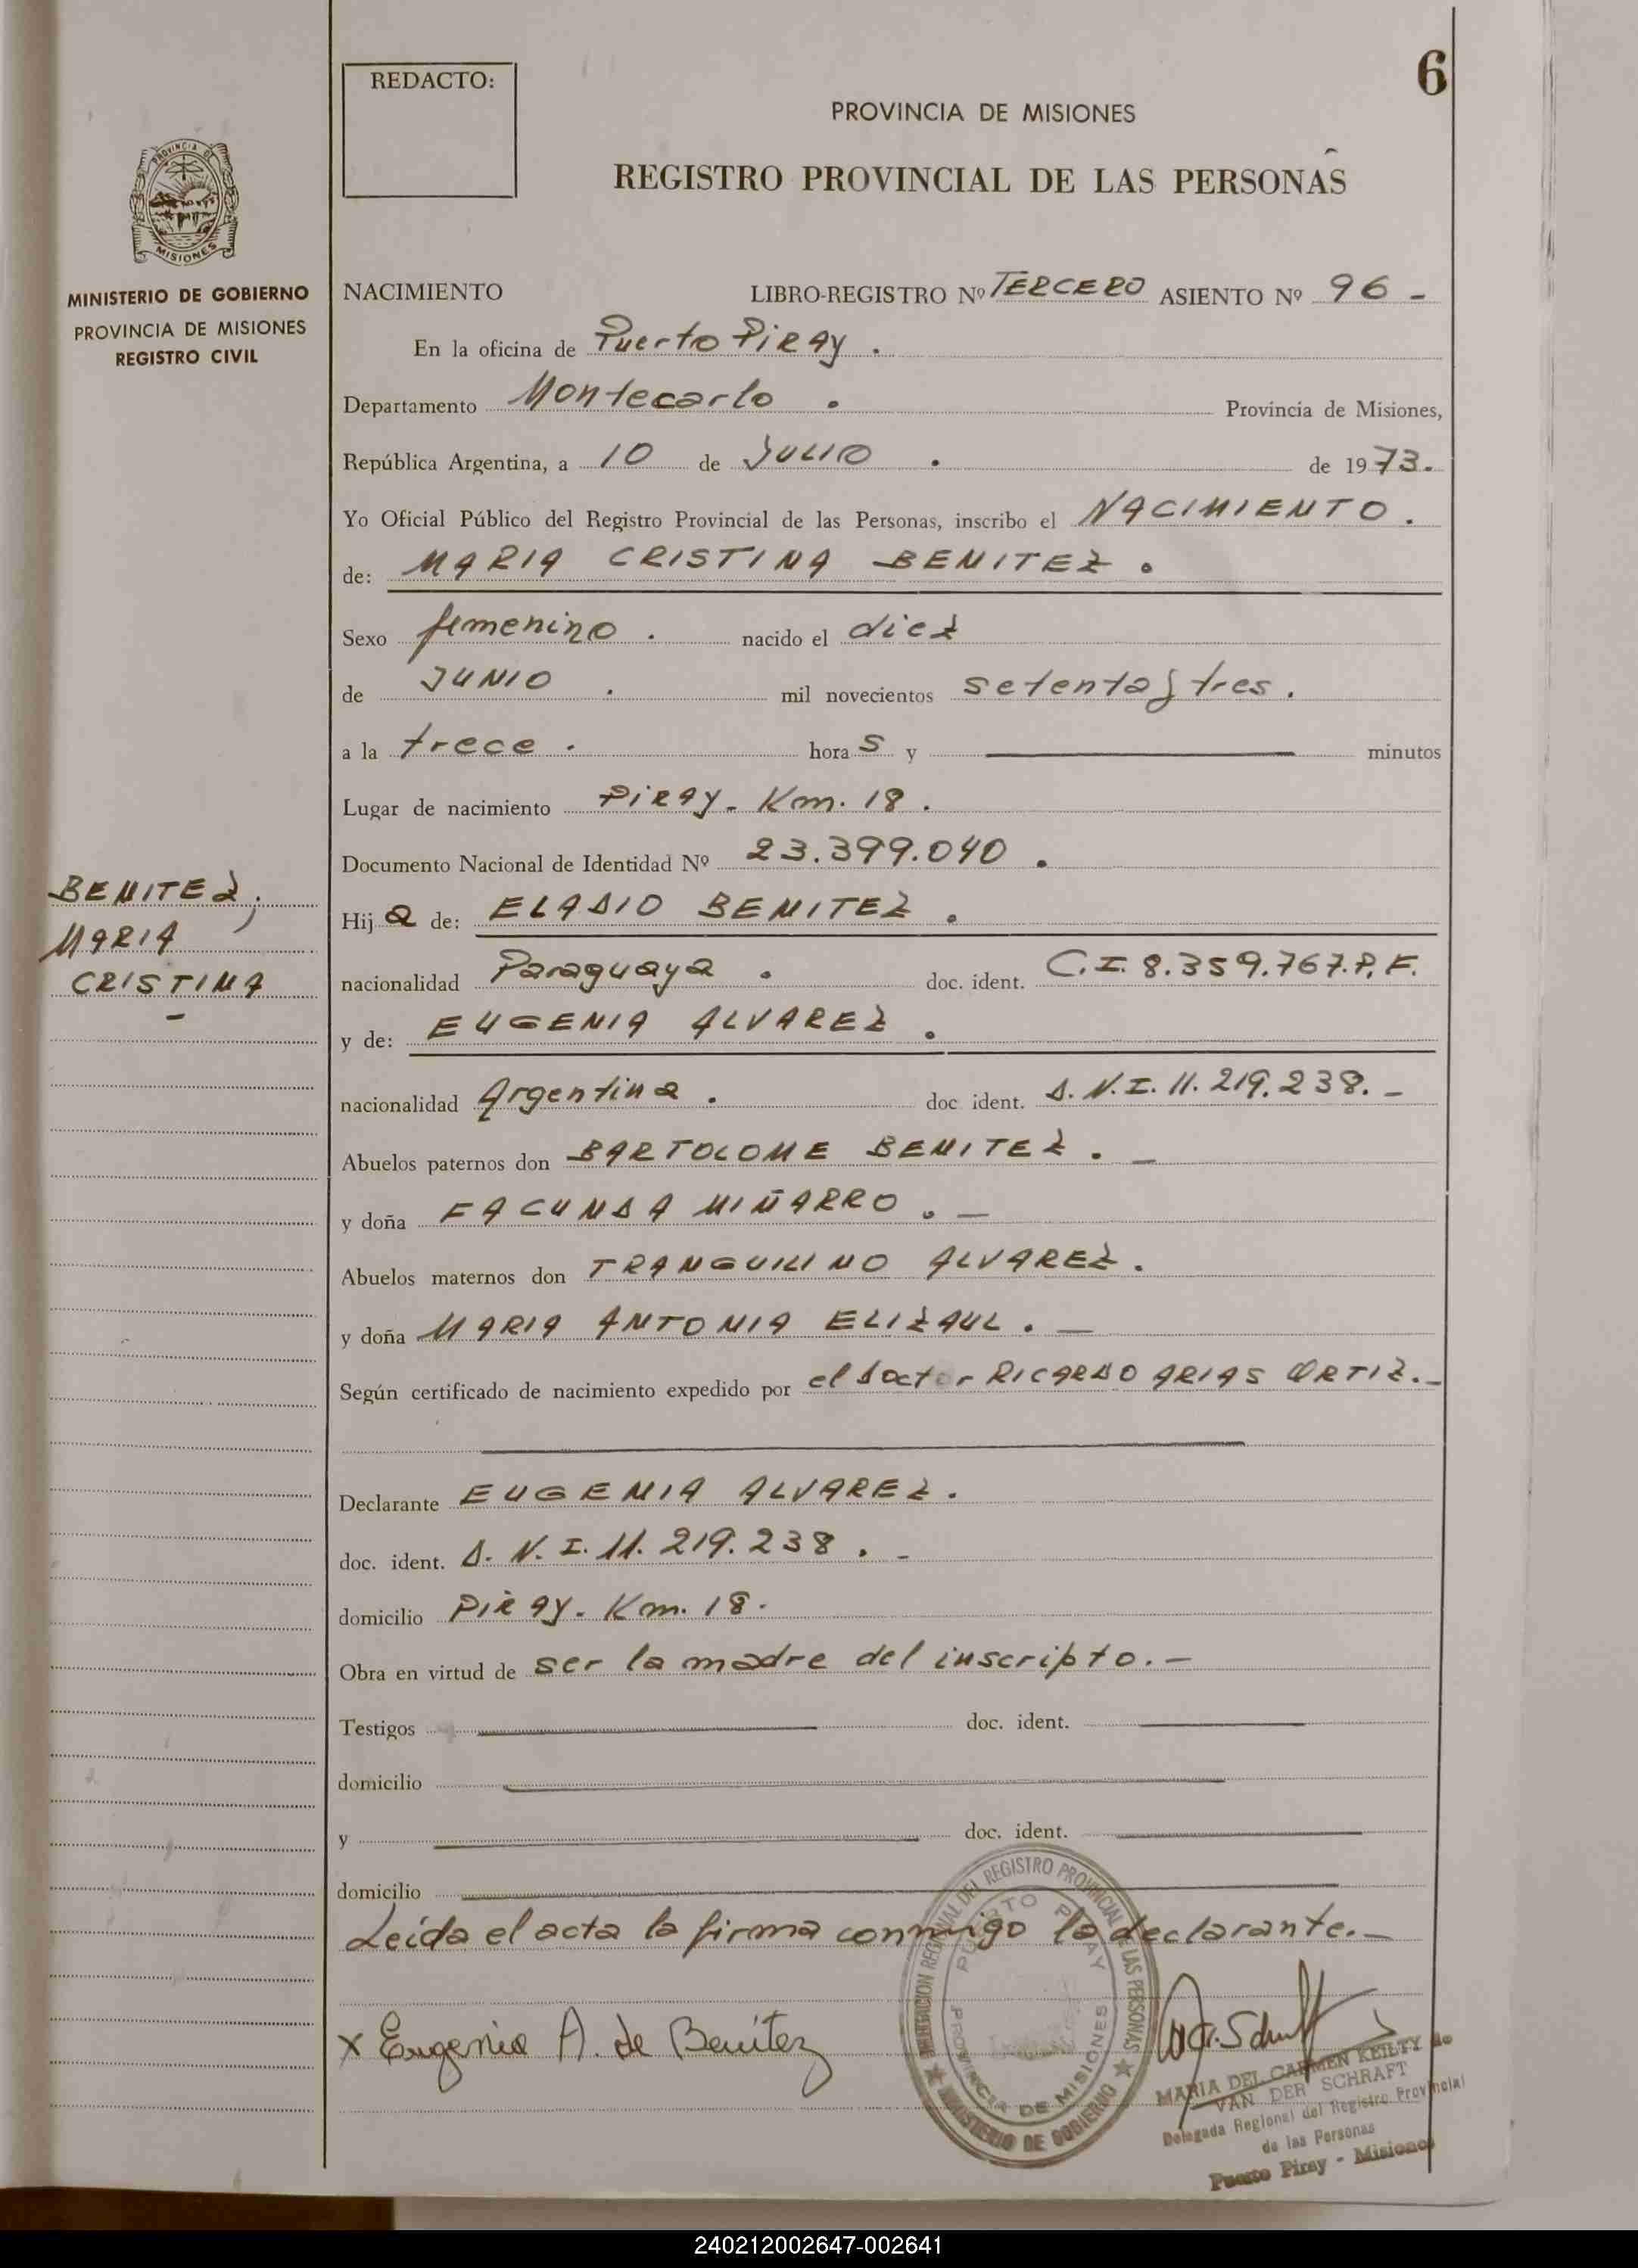 6
REDACTO:
PROVINCIA DE MISIONES
REGISTRO PROVINCIAL DE LAS PERSONAS
PROVINCIA DE
MISIONES
MINISTERIO DE GOBIERNO
PROVINCIA DE MISIONES
REGISTRO CIVIL
NACIMIENTO LIBRO-REGISTRO Nº TERCERO ASIENTO Nº 96 -
En la oficina de Puerto Piray .
Departamento Montecarlo . Provincia de Misiones,
República Argentina, a 10 de JULIO . de 1973.
Yo Oficial Público del Registro Provincial de las Personas, inscribo el NACIMIENTO.
de: MARIA CRISTINA BENITEZ .
Sexo femenino . nacido el diez
de JUNIO . mil novecientos setenta y tres .
a la trece . hora s y minutos
Lugar de nacimiento PIRAY. Km. 18 .
Documento Nacional de Identidad Nº 23.399.040 .
BENITEZ,
MARIA
CRISTINA
-
Hij a de: ELADIO BENITEZ .
nacionalidad Paraguaya . doc. ident. C.I. 8.359.767.P.F.
y de: EUGENIA ALVAREZ .
nacionalidad Argentina . doc ident. D.N.I. 11.219.238. -
Abuelos paternos don BARTOLOME BENITEZ . -
y doña FACUNDA MIÑARRO . -
Abuelos maternos don TRANGUILINO ALVAREZ .
y doña MARIA ANTONIA ELIZAUL . -
Según certificado de nacimiento expedido por el Doctor RICARDO ARIAS ORTIZ.-
Declarante EUGENIA ALVAREZ .
doc. ident. D. N. I. 11. 219. 238 . -
domicilio PIRAY. Km. 18.
Obra en virtud de ser la madre del inscripto. -
Testigos doc. ident.
domicilio
y doc. ident.
domicilio
Leída el acta la firma conmigo la declarante. -
x Eugenia A. de Benítez
DELEGACION REGIONAL DEL REGISTRO PROVINCIAL DE LAS PERSONAS
PUERTO PIRAY
PROVINCIA DE MISIONES
MINISTERIO DE GOBIERNO
MARIA DEL CARMEN KEILTY de
VAN DER SCHRAFT
Delegada Regional del Registro Provincial
de las Personas
Puerto Piray - Misiones
240212002647-002641